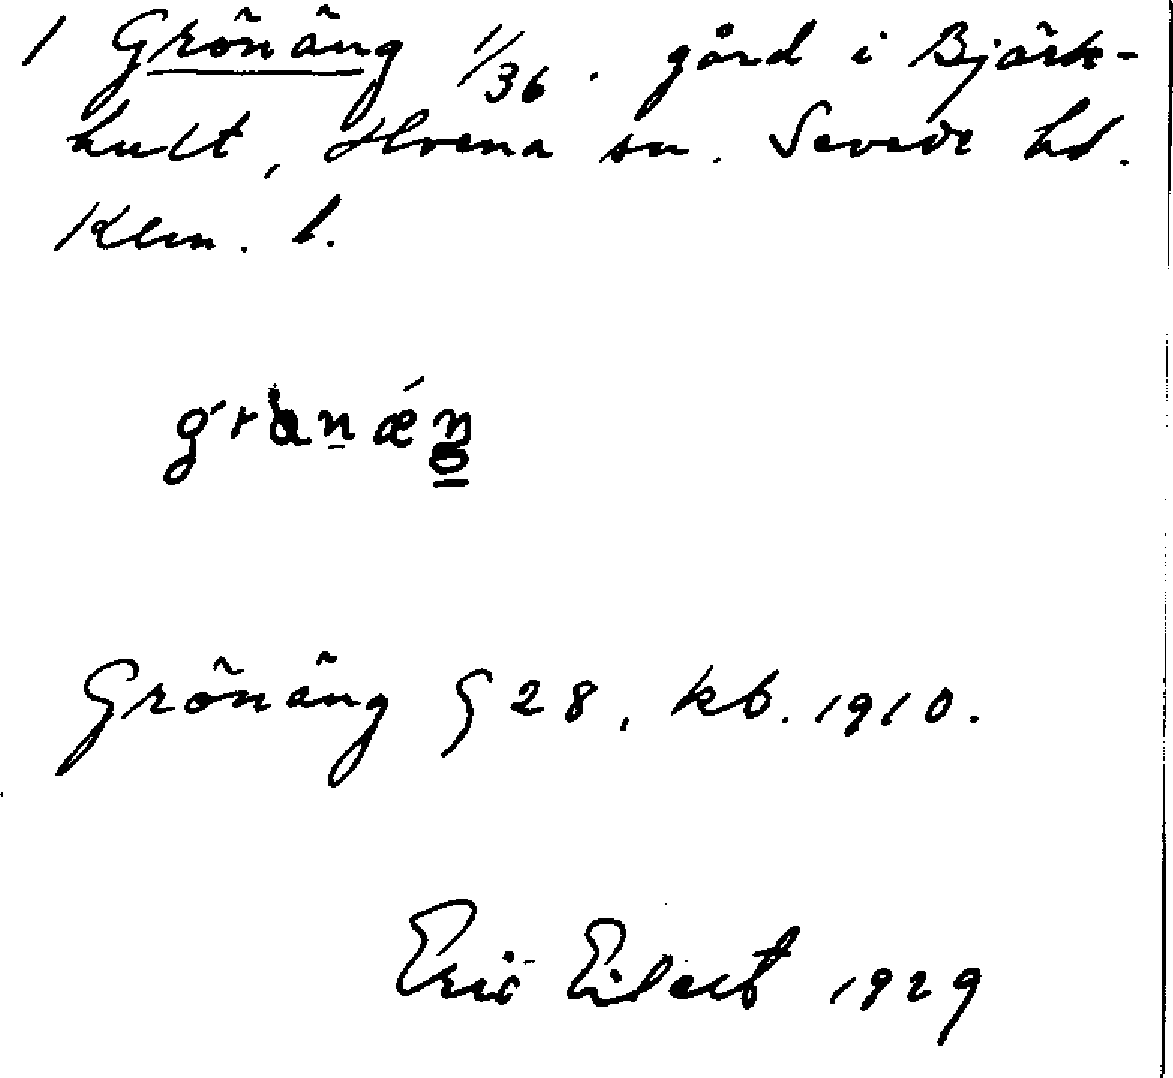 1 Grönäng 1/36. gård i Björk-
hult, Hvena sn. Sevede hd.
Klm. l.
Grönäng G 28, kb. 1910.
Eric Eilert 1929